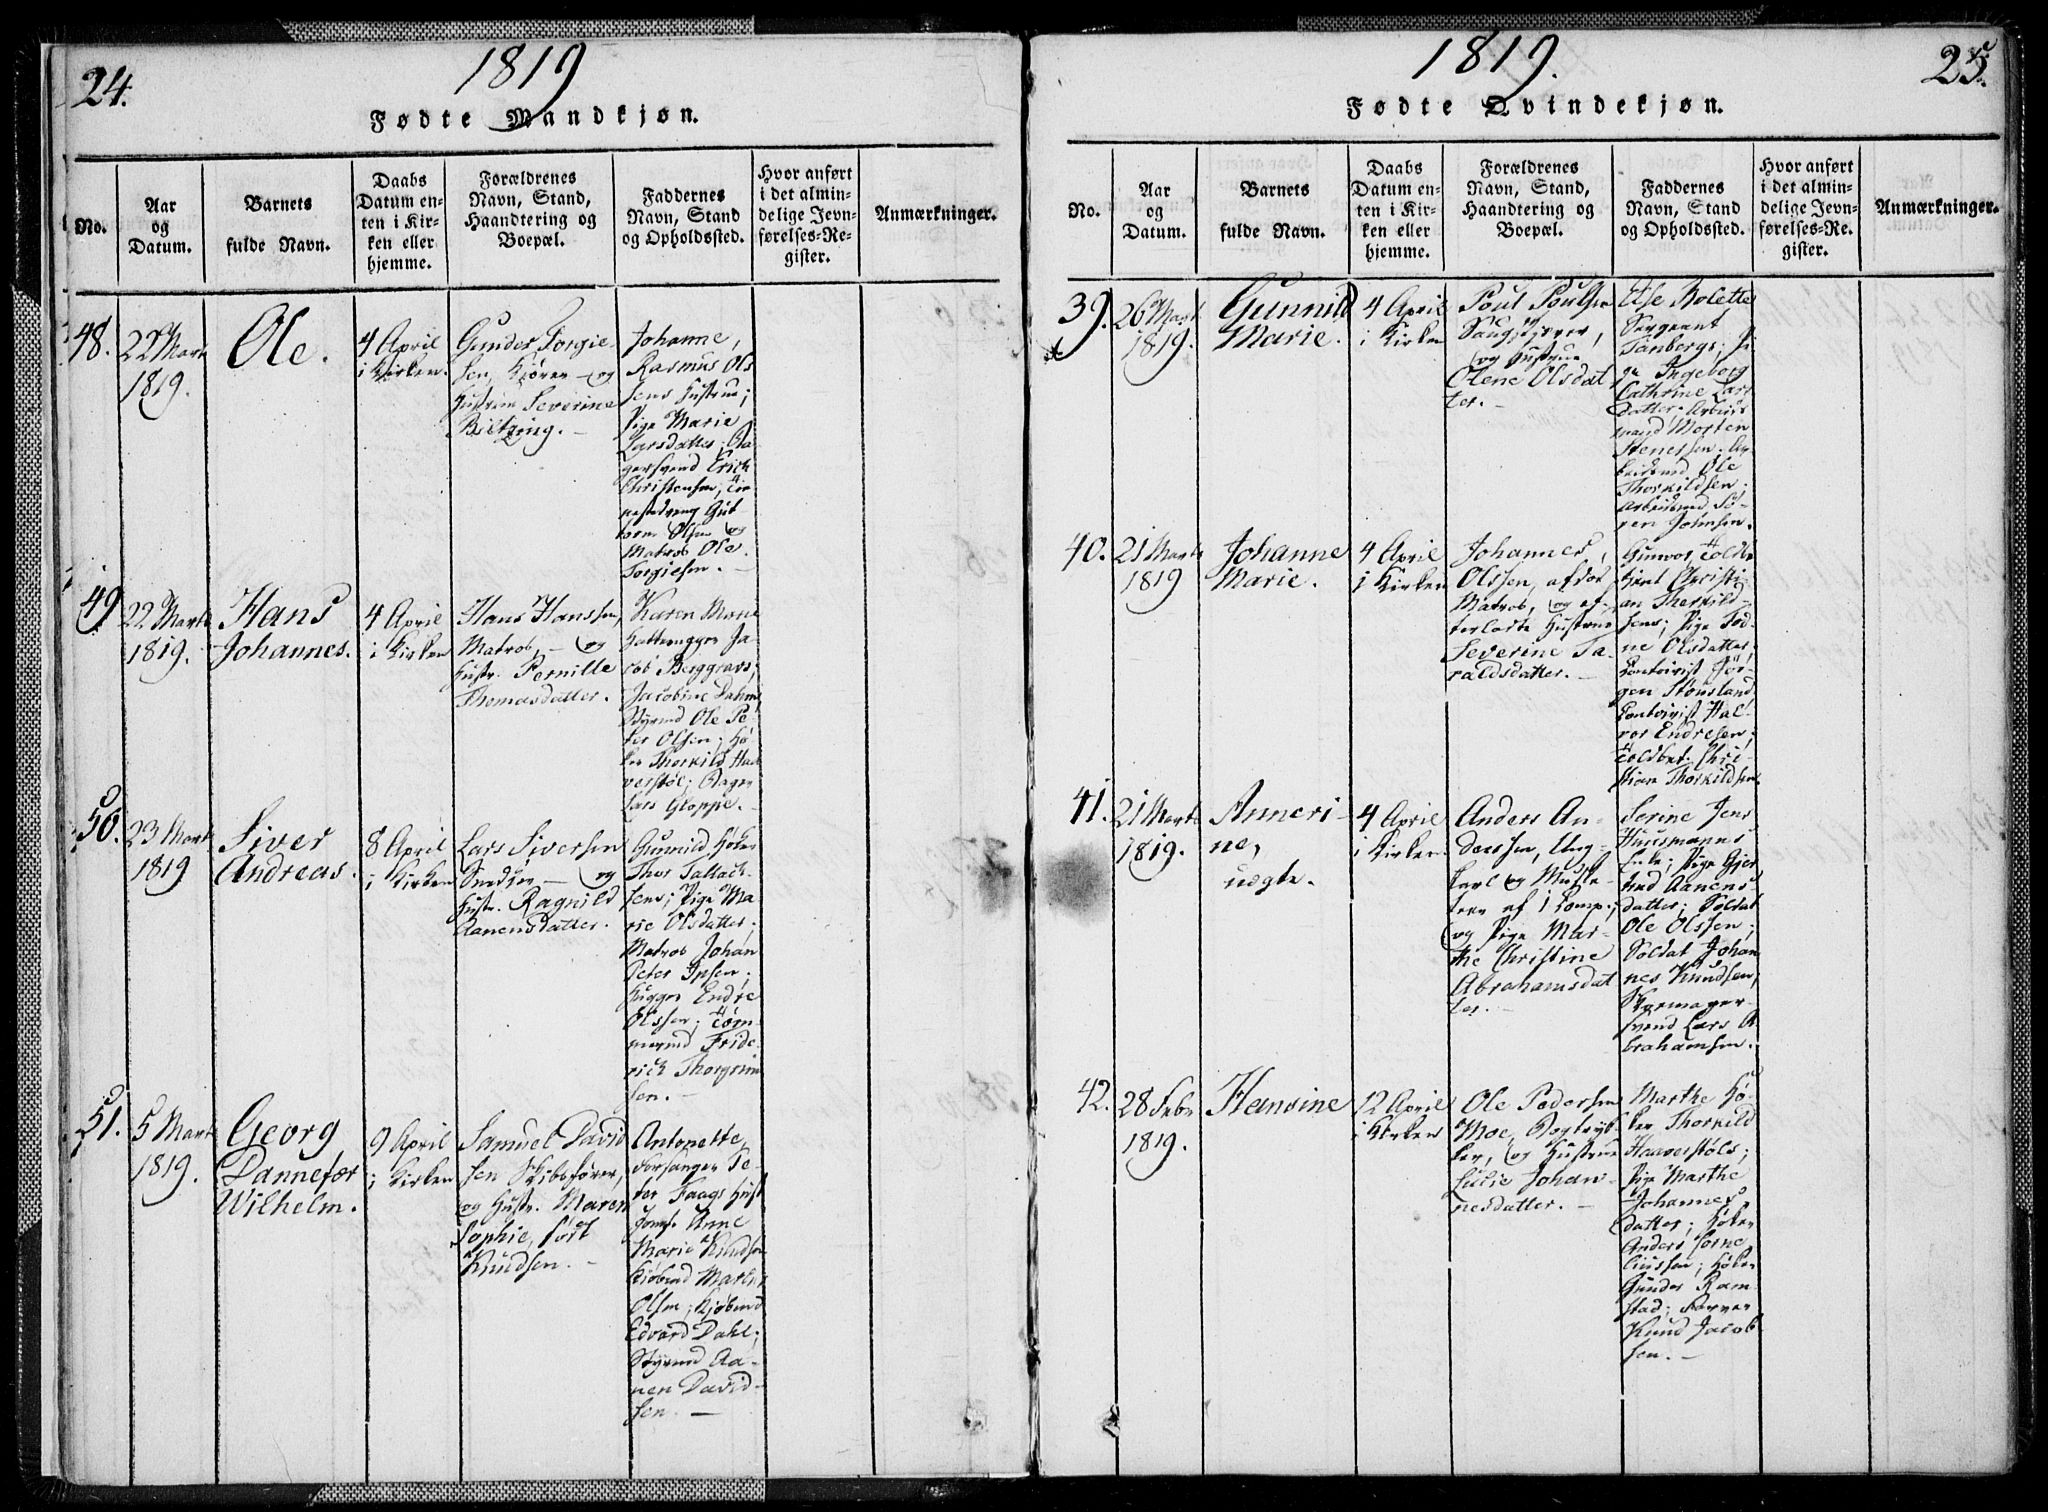 24.
1819
Fødte Mandkjøn.
No.
Aar
og
Datum.
Barnets
fulde Navn.
Daabs
Datum en-
ten i Kir-
ken eller
hjemme.
Forældrenes
Navn, Stand,
Haandtering og
Boepæl.
Faddernes
Navn, Stand
og Opholdssted.
Hvor anført
i det almin-
delige Jevn-
førelses-Re-
gister.
Anmærkninger.
48.
22 Marts
1819.
Ole.
4 April
i Kirken.
Gunder Torgie-
sen, Kjører — og
Hustrue Severine
Biltzing. —
Johanne,
Rasmus Ols
sens Hustrue;
Pige Marie
Larsdatter; Ba
gersvend Erich
Christensen,
Gut-
torm Olsen og
Matros Ole
Torgiesen. —
49
22 Marts
1819.
Hans
Johannes.
4 April
i Kirken
Hans Hanssen,
Matros, — og
Hustr. Pernille
Thomasdatter.
Karen Marie
Ja-
cob Berggravs;
Jacobine Dahm,
Styrmd Ole Pe-
ter Olsen; Hø-
ker Thorkild Haa
verstøl; Bager
Lars Gloppe.
50.
23 Marts
1819
Siver
Andreas.
8 April
i Kirken
Lars Siversen
Snedker — og
Hustr. Ragnild
Aanensdatter.
Gunnild Høker
Thor Tallack-
sens; Pige Ma-
rie Olsdatter;
Matros Johan
Peter Ipsen;
Hugger Endre
Olssen; Tøm-
mermd Fride-
rich Thorgrim
sen. —
51.
5 Marts
1819.
Georg
Dannefær
Wilhelm.
9 April
i Kirken
Samuel David
sen Skibsfører,
og Hustr. Maren
Sophie, født
Knudsen. —
Antonette,
Forsanger Pe-
ter Faags Hust
Jomfr Anne
Marie Knudsen
Kjøbmd Martin
Olsen; Kjøbmd
Edvard Dahl;
Styrmd Aa-
nen David-
sen. —
1819.
25.
Fødte Qvindekjøn.
No.
Aar
og
Datum.
Barnets
fulde Navn.
Daabs
Datum en-
ten i Kir-
ken eller
hjemme.
Forældrenes
Navn, Stand,
Haandtering og
Boepæl.
Faddernes
Navn, Stand
og Opholdssted.
Hvor anført
i det almin-
delige Jevn-
førelses-Re-
gister.
Anmærkninger.
39.
26 Marts
1819.
Gunnild
Marie.
4 April
i Kirken
Poul Poulsen
Saugskjærer,
og Hustrue
Olene Olsdat
ter. —
Else Bolette
Sergeant
Tanbergs; Pi
ge Ingeborg
Cathrine Lars
datter; Arbeids
mand Morten
Stenersen; Ar
beidsmd Ole
Thorkildsen;
Arbeidsmd Sø-
ren Johnsen.
40.
21 Marts
1819
Johanne
Marie.
4 April
i Kirken
Johannes
Olssen, afdød
Matros, og ef-
terladte Hustrue
Severine Ta-
raldsdatter. —
Gunvor, Told
Christi-
an Therkild-
sens; Pige Tod-
ne Olsdatter,
Contorist Jør-
gen Stousland
Contorist Hal-
vor Endresen;
Toldbet. Chri-
stian Thorkildsen
41.
21 Marts
1819.
Anneri-
ne,
uægte.
4 April
i Kirken.
Anders An-
derssen, Ung-
karl og Muske-
teer af 1 Comp.;
og Pige Mar-
the Christine
Abrahamsdat
ter. —
Serine Jens
Huusmanns
Enke; Pige Gjer
trud Aanens
datter; Soldat
Ole Olssen;
Soldat Johan
nes Knudsen,
Skomager-
svend Lars A
brahamsen.
42.
28 Febr
1819.
Hansine
12 April
i Kirken
Ole Pedersen
Moe, Bogtryk-
ker, og Hustrue
Lucie Johan-
nesdatter. —
Marthe Hø-
ker Thorkild
Haaverstøls;
Pige Marthe
Johannes
datter; Høker
Anders Corne
liussen; Høker
Gunder Ram-
stad; Farver
Knud Jacob
sen. —